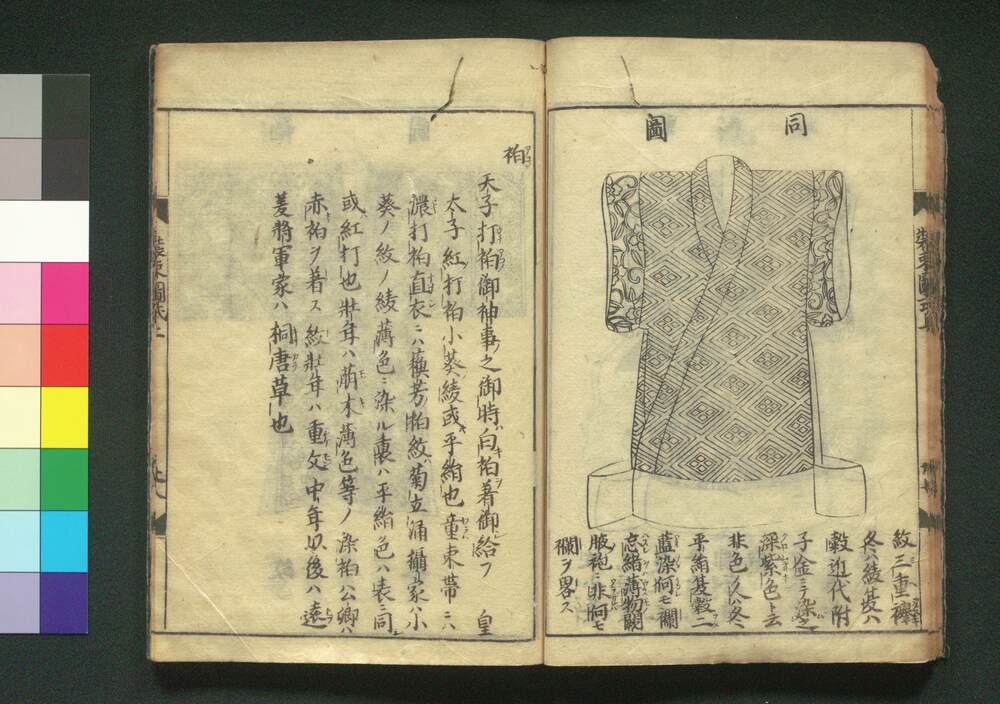 同圖
紋三重襷
冬ハ綾夏ハ
縠近代附
子金ニテ染之
深紫色ト云
非色ノ人ハ冬ハ
平絹夏縠二
藍染何モ襴
忘緒薄物闕
腋袍ニ非何モ
襴ヲ畧ス
衵
天子打衵御神事之御時白衵着御給フ 皇
太子紅打衵小葵綾或平絹也童束帶ニハ
濃打衵直衣ニハ蘓芳衵紋ハ菊立涌攝家ハ小
葵ノ紋ノ綾薄色ニ染ル裏ハ平絹色ハ表ニ同
或紅打也壯年ハ萠木薄色等ノ染衵公卿ハ
赤衵ヲ着ス紋壯年ハ重文中年以後ハ遠
菱將軍家ハ桐唐草也